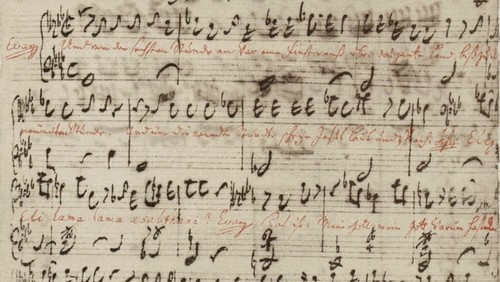 Evang Und von der sechsten Stunde an war eine Finsterniß über das gantze Land, biß zu der
neundten Stunde. Und um die neundte Stunde schrie Jesus laut und sprach. Eli
Eli lama lama asabthani? Evang Das ist: Mein Gott, mein Gott, warum hast du